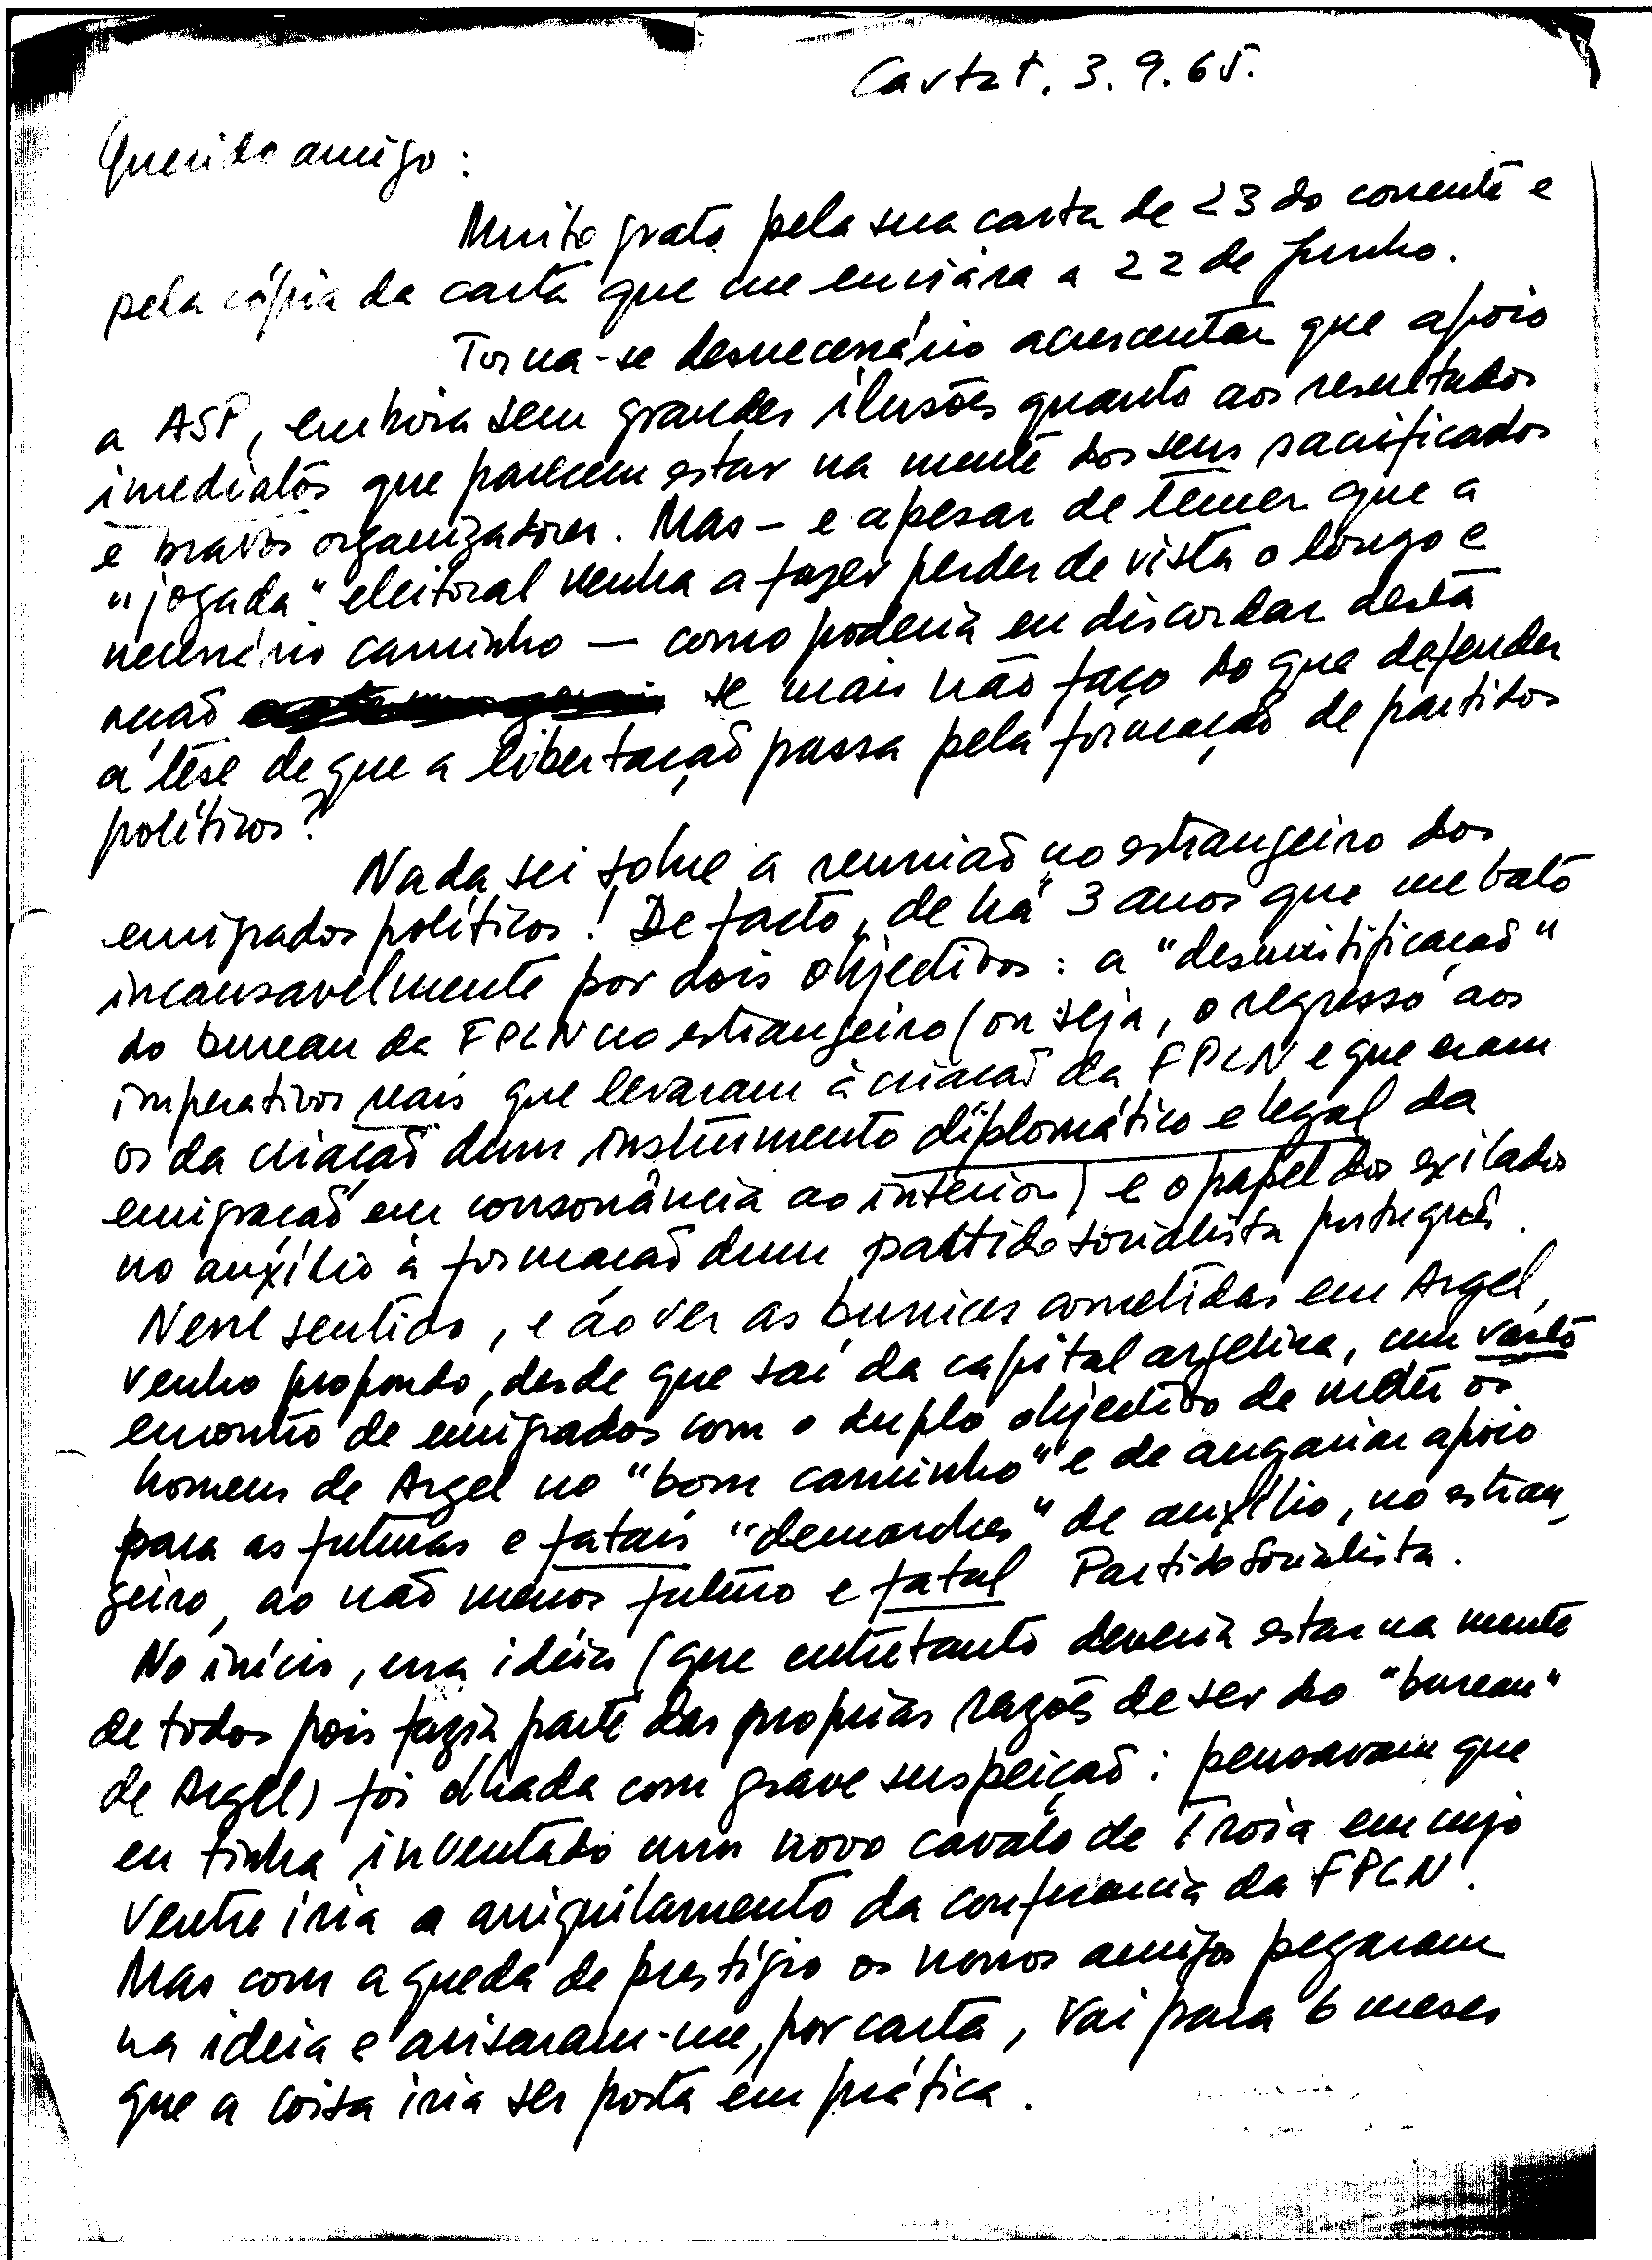 Cartat, 3.9.65.
Querido amigo:
Muito grato pela sua carta de 23 do corrente e
pela cópia da carta que me enviára a 22 de Junho.
Torna-se desnecessário acrescentar que apoio
a ASP, embora sem grandes ilusões quanto aos resultados
imediatos que parecem estar na mente dos seus sacrificados
e bravos organizadores. Mas – e apesar de temer que a
"jogada" eleitoral venha a fazer perder de vista o longo e
necessário caminho — como poderia eu discordar desta
acção se mais não faço do que defender
a tese de que a libertação passa pela formação de partidos
políticos?
Nada sei sobre a reunião no estrangeiro dos
emigrados políticos! De facto, de há 3 anos que me bato
incansavelmente por dois objectivos: a "desmitificação"
do bureau da FPLN no estrangeiro (ou seja, o regresso aos
imperativos reais que levaram à criação da FPLN e que eram
os da criação dum instrumento diplomático e legal da
emigração em consonância ao interior) e o papel dos exilados
no auxílio à formação dum partido socialista português.
Nesse sentido, e ao ver as burrices cometidas em Argel,
venho propondo, desde que saí da capital argelina, um vasto
encontro de emigrados com o duplo objectivo de meter os
homens de Argel no "bom caminho" e de angariar apoio
para as futuras e fatais "demarches" de auxílio, no estran-
geiro, ao não menos futuro e fatal Partido Socialista.
No início, essa ideia (que entretanto deveria estar na mente
de todos pois fazia parte das proprias razões de ser do "bureau"
de Argel) foi olhada com grave suspeição: pensavam que
eu tinha inventado um novo cavalo de Troia em cujo
ventre iria o aniquilamento da confiancia da FPLN!
Mas com a queda de prestígio os nossos amigos pegaram
na ideia e avisaram-me, por carta, vai para 6 meses
que a coisa iria ser posta em prática.